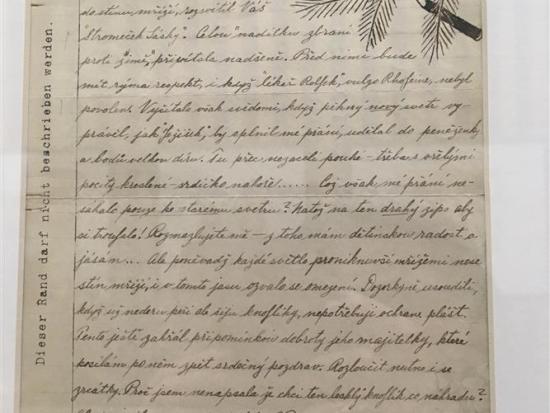 do stínu mříží, rozsvítil Váš
"Stromeček lásky". Celou nadílku zbraní
proti "zimě", přivítala nadšeně. Před nimi bude
mít rýma respekt, i když "lékař Rolfek", vulgo nebyl
povolen. Vyčítalo však svědomí, když pěkný nový svetr vy-
právěl, jak "Ježíšek", by splnil mé přání, udělal do peněženky
a bodů velkou díru. Tu přec nezacelí pouhé – třebas vřelými
pocity kreslené – srdíčko nahoře...... Což však mé přání ne-
sáhalo pouze ke starému svetru? Natož na ten drahý zips aby
si troufalo! Rozmazlujete mě – z toho mám dětinskou radost a
jásám... Ale poněvadž každé světlo proniknuvší mřížemi nese
stín mříží, i v tomto jasu ozvalo se omezení. Dozorkyni usoudili,
když už nederu při de knoflíky, nepotřebuji ochranu plášť.
Tento ještě zahřál připomínkou dobroty jeho majitelky, které
posílám po něm zpět srdečný pozdrav. Rozloučit nutno i se
zrcátky. Proč jsem nenapsala že chci ten knoflík co náhradu?
Dieser Rand darf nicht beschrieben werden.